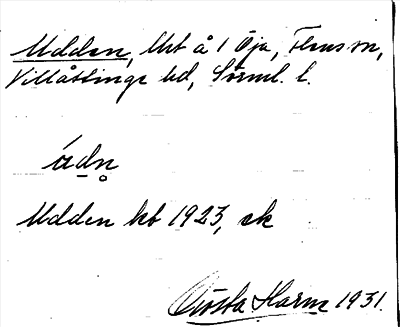 Udden, Urt å 1 Öja, Flens sn,
Villåttinge hd, Sörml. l.
ádn̥
Udden kb 1923, ek
Gösta Harm 1931.